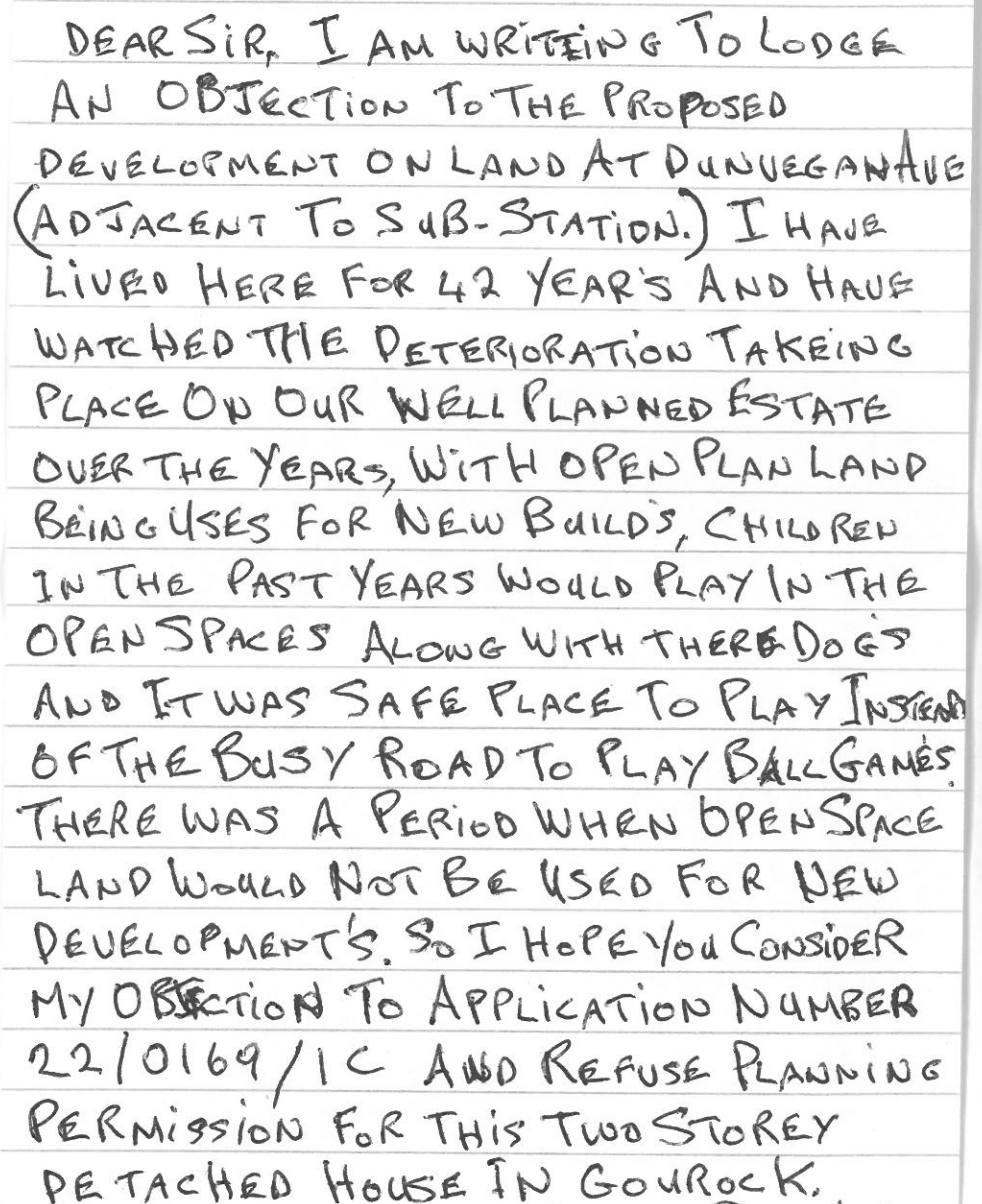 DEAR SIR, I AM WRITEING TO LODGE
AN OBJECTION TO THE PROPOSED
DEVELOPMENT ON LAND AT DUNVEGAN AVE
(ADJACENT TO SUB-STATION.) I HAVE
LIVED HERE FOR 42 YEAR'S AND HAVE
WATCHED THE DETERIORATION TAKEING
PLACE ON OUR WELL PLANNED ESTATE
OVER THE YEARS, WITH OPEN PLAN LAND
BEING USES FOR NEW BUILD'S, CHILDREN
IN THE PAST YEARS WOULD PLAY IN THE
OPEN SPACES ALONG WITH THERE DOG'S
AND IT WAS SAFE PLACE TO PLAY INSTEAD
OF THE BUSY ROAD TO PLAY BALL GAME'S.
THERE WAS A PERIOD WHEN OPEN SPACE
LAND WOULD NOT BE USED FOR NEW
DEVELOPMENT'S. SO I HOPE YOU CONSIDER
MY OBJECTION TO APPLICATION NUMBER
22/0169/IC AND REFUSE PLANNING
PERMISSION FOR THIS TWO STOREY
DETACHED HOUSE IN GOUROCK.